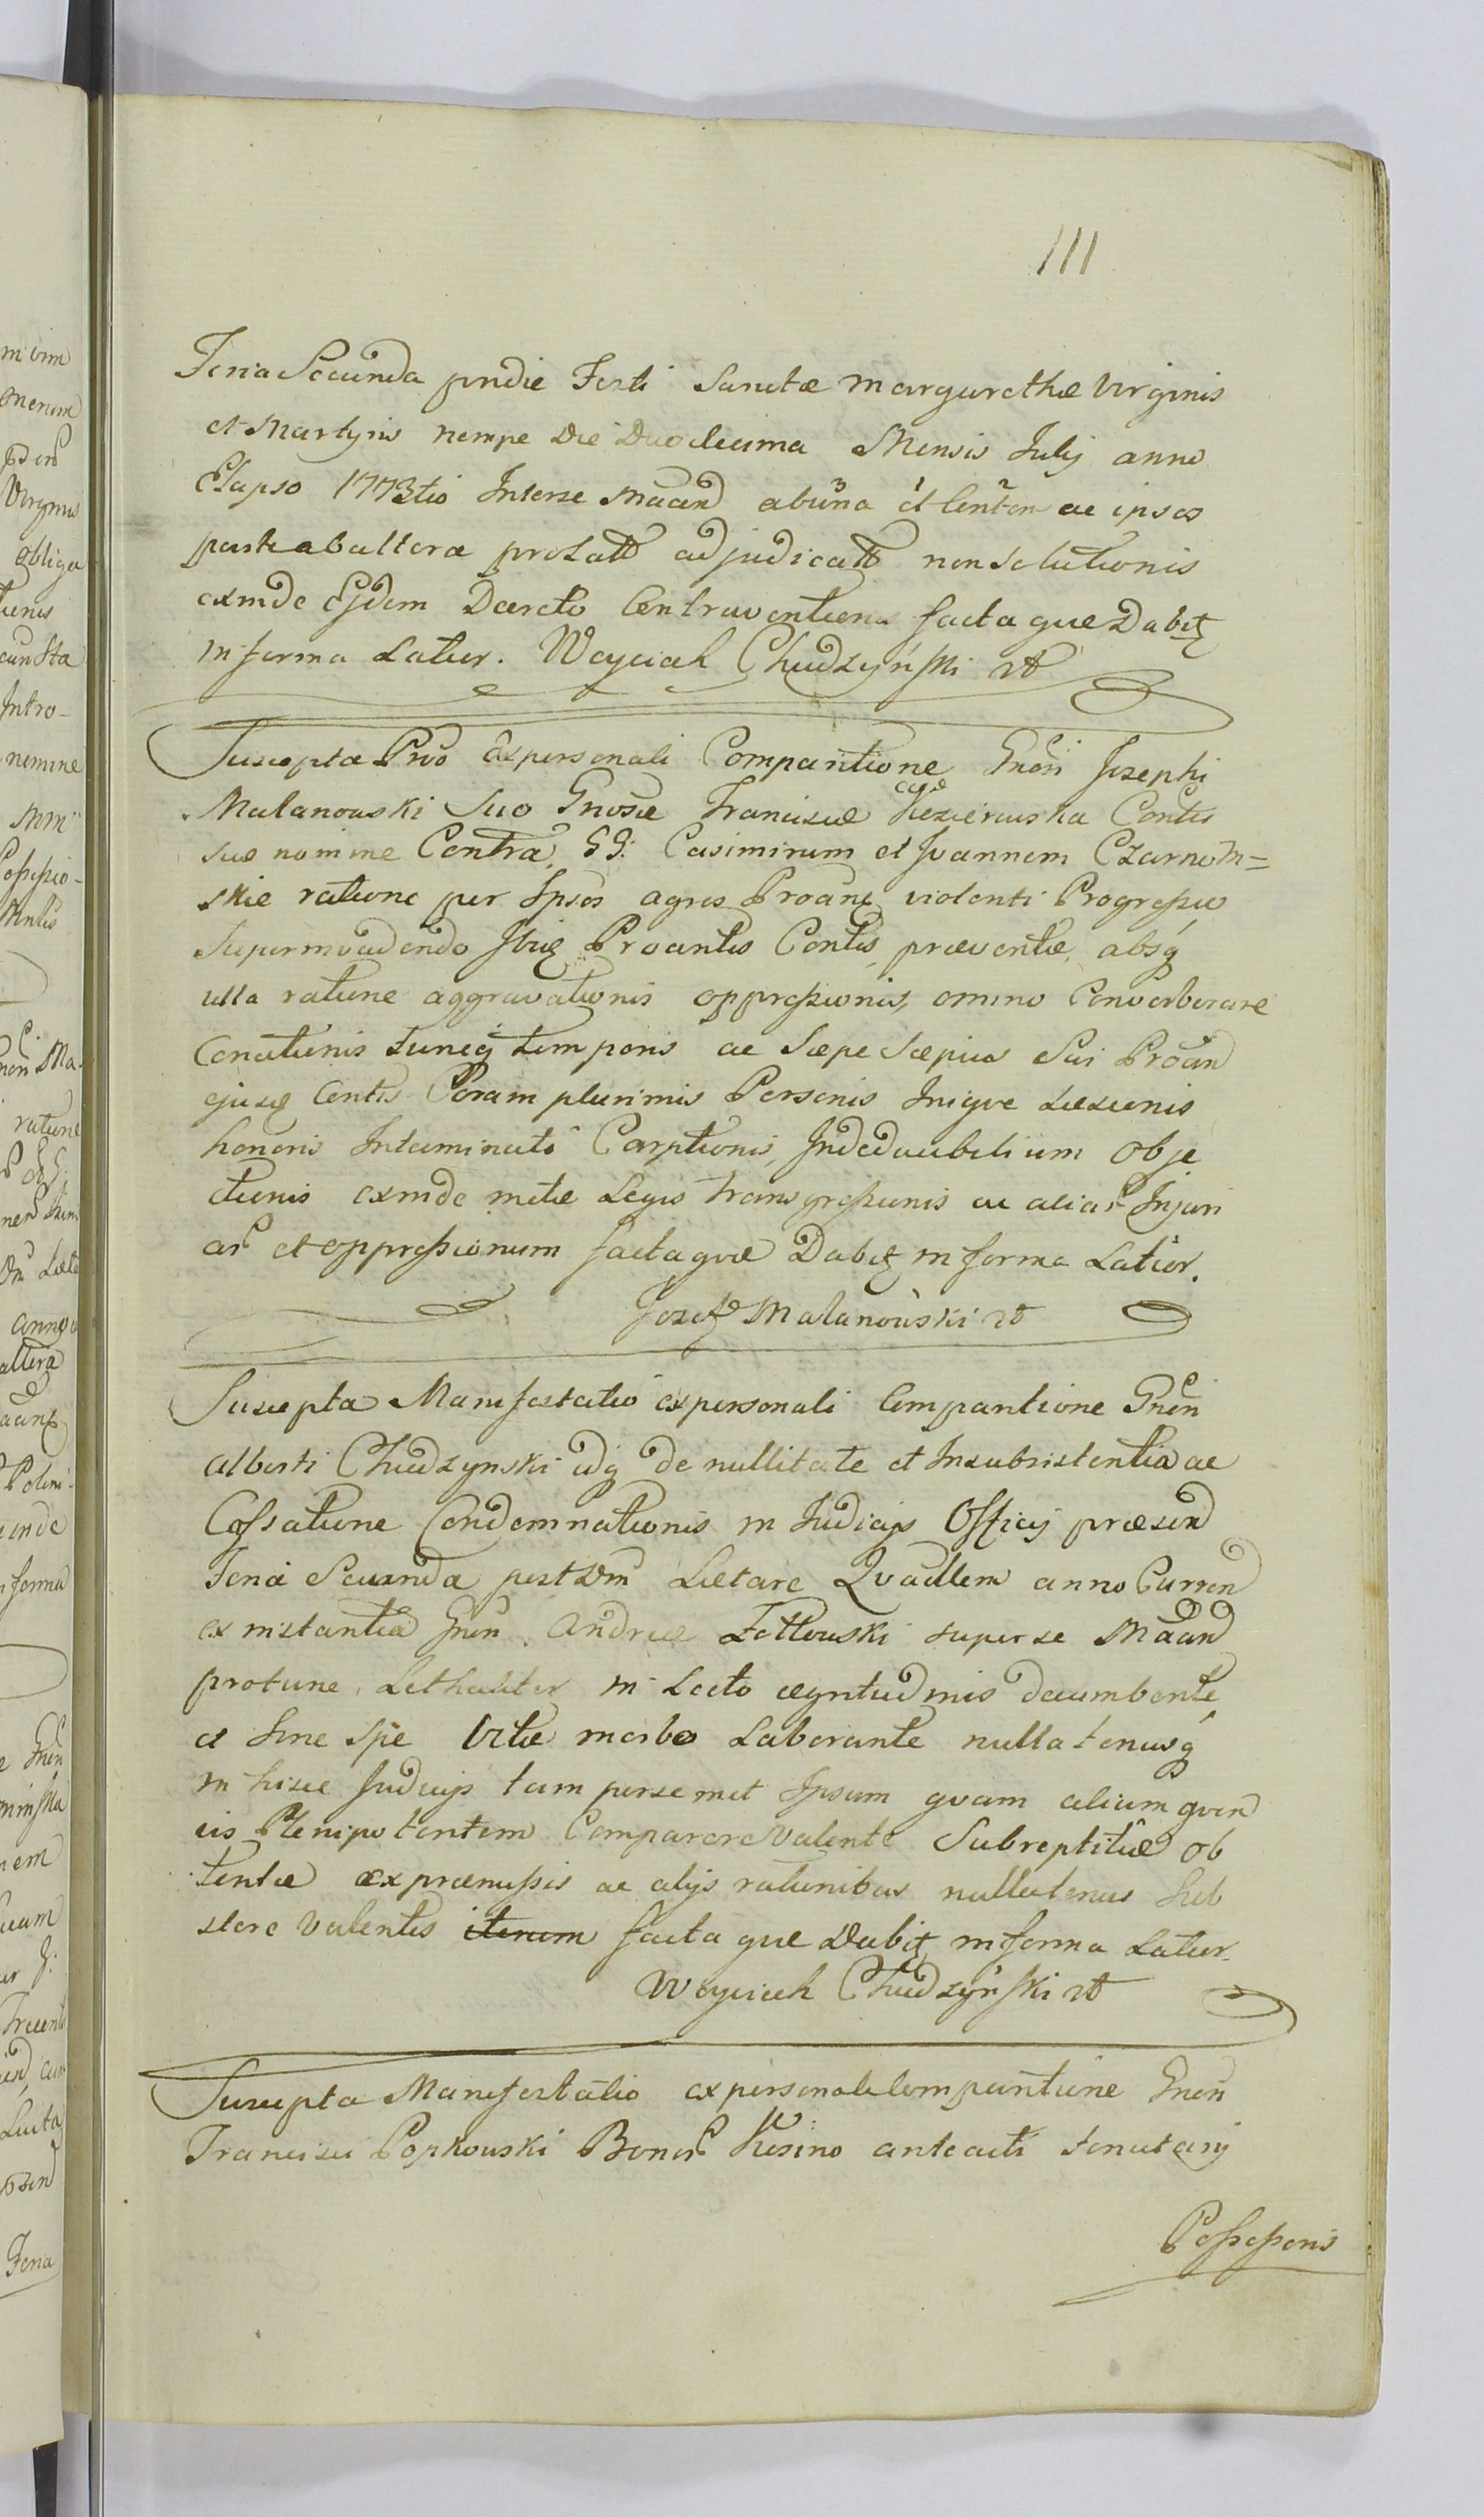 111
Feria Secunda pridie Festi Sanctæ Margarethæ Virginis
et Martyris nempe Die Duodecima Mensis Julij anno
Elapso 1773tio Interse Maand ab una et Conten ac ipsos
parte ab altera prolatt adjudicatt non solutionis
exinde Ejdem Decreto Contraventionis facta quæ Dabit
in forma Latior. Woyciech Chudzyński rt
Suscepta Prõ ex personali Comparitione Gnõn Josephi
Malanowski Suo Gnosæ Franciscæ Contis
suæ nomine Contra GG: Casimirum et Joannem Czarnom=
skie ratione per Ipsos agros Proang violenti Progressus
Superinvadendo Proantis Contis præventæ, absq
ulla ratione aggravationis oppressionis, omino Converberare
Conationis tuncq temporis ac Sæpe Sæpius Sui Proan
ejusq Contis Coram plurimis Personis Inique Læsionis
honoris Intaminato Carptionis, obje
ctionis exinde metæ Legis transgressionis ac aliar Injuri
ar et oppressionum facta quæ Dabit in forma Latior.
Jozef Malanowski rt
Suscepta Manifestatio ex personali Comparitione Gnen
alberti Chudzynski idq de nullitate et Insubsistentia ac
Cassatione Condemnationis in Judicijs Officij præsen
Feria Secunda post Dm Lætare Quadlem anno Curren
ex instantia Gnen Andreæ Zottowski super se Maan
protunc, Lethaliter in Lecto ægritudinis decumbente,
et sine spe Vitæ morbo Laborante nullatenusq
in hisce Judicijs tam persemet Ipsum quam alium quen
vis Plenipotentem Comparere Valente Subreptitiæ ob
tentæ ex præmissis ac alijs rationibus nullatenus Sub
stere Valentis iterum facta quæ Dabit in forma Latior.
Woyciech Chudzyński rt
Suscepta Manifestatio ex personali Comparitione Gnen
Francisci Popkowski Bonor Kesino anteacti tenutarij
Possessoris